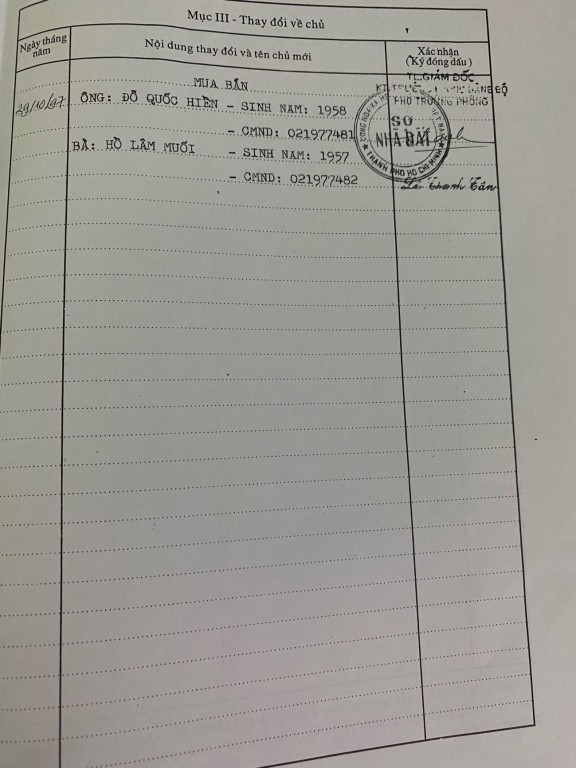 Mục III - Thay đổi về chủ
Ngày tháng năm
Nội dung thay đổi và tên chủ mới
Xác nhận
(Ký đóng dấu)
MUA BÁN
TL.GIÁM ĐỐC
PHÓ TRƯỞNG PHÒNG
29/10/97
ÔNG: ĐỖ QUỐC HIỀN - SINH NĂM: 1958
- CMND: 021977481
BÀ: HỒ LÂM MUỐI - SINH NĂM: 1957
- CMND: 021977482
SỞ
NHÀ ĐẤT
THÀNH PHỐ HỒ CHÍ MINH
Lê Thanh Tân